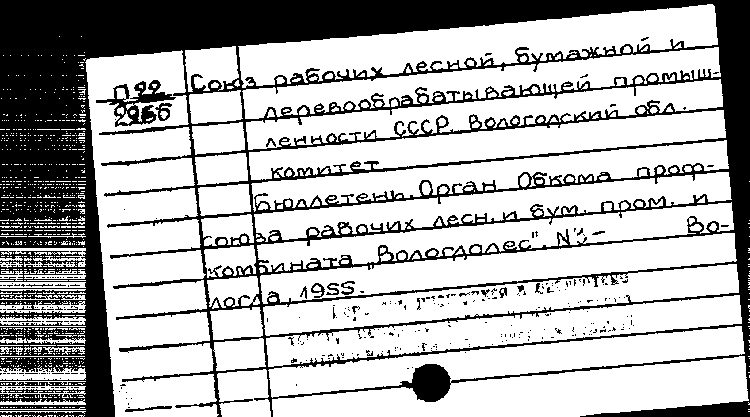 П 22
Союз рабочих лесной, бумажной и
деревообрабатывающей промыш-
ленности СССР. Вологодский обл.
комитет
Бюллетень. Орган Обкома проф-
союза рабочих лесн. и бум. пром. и
комбината „Вологдолес". N3– Во-
логда, 1955.